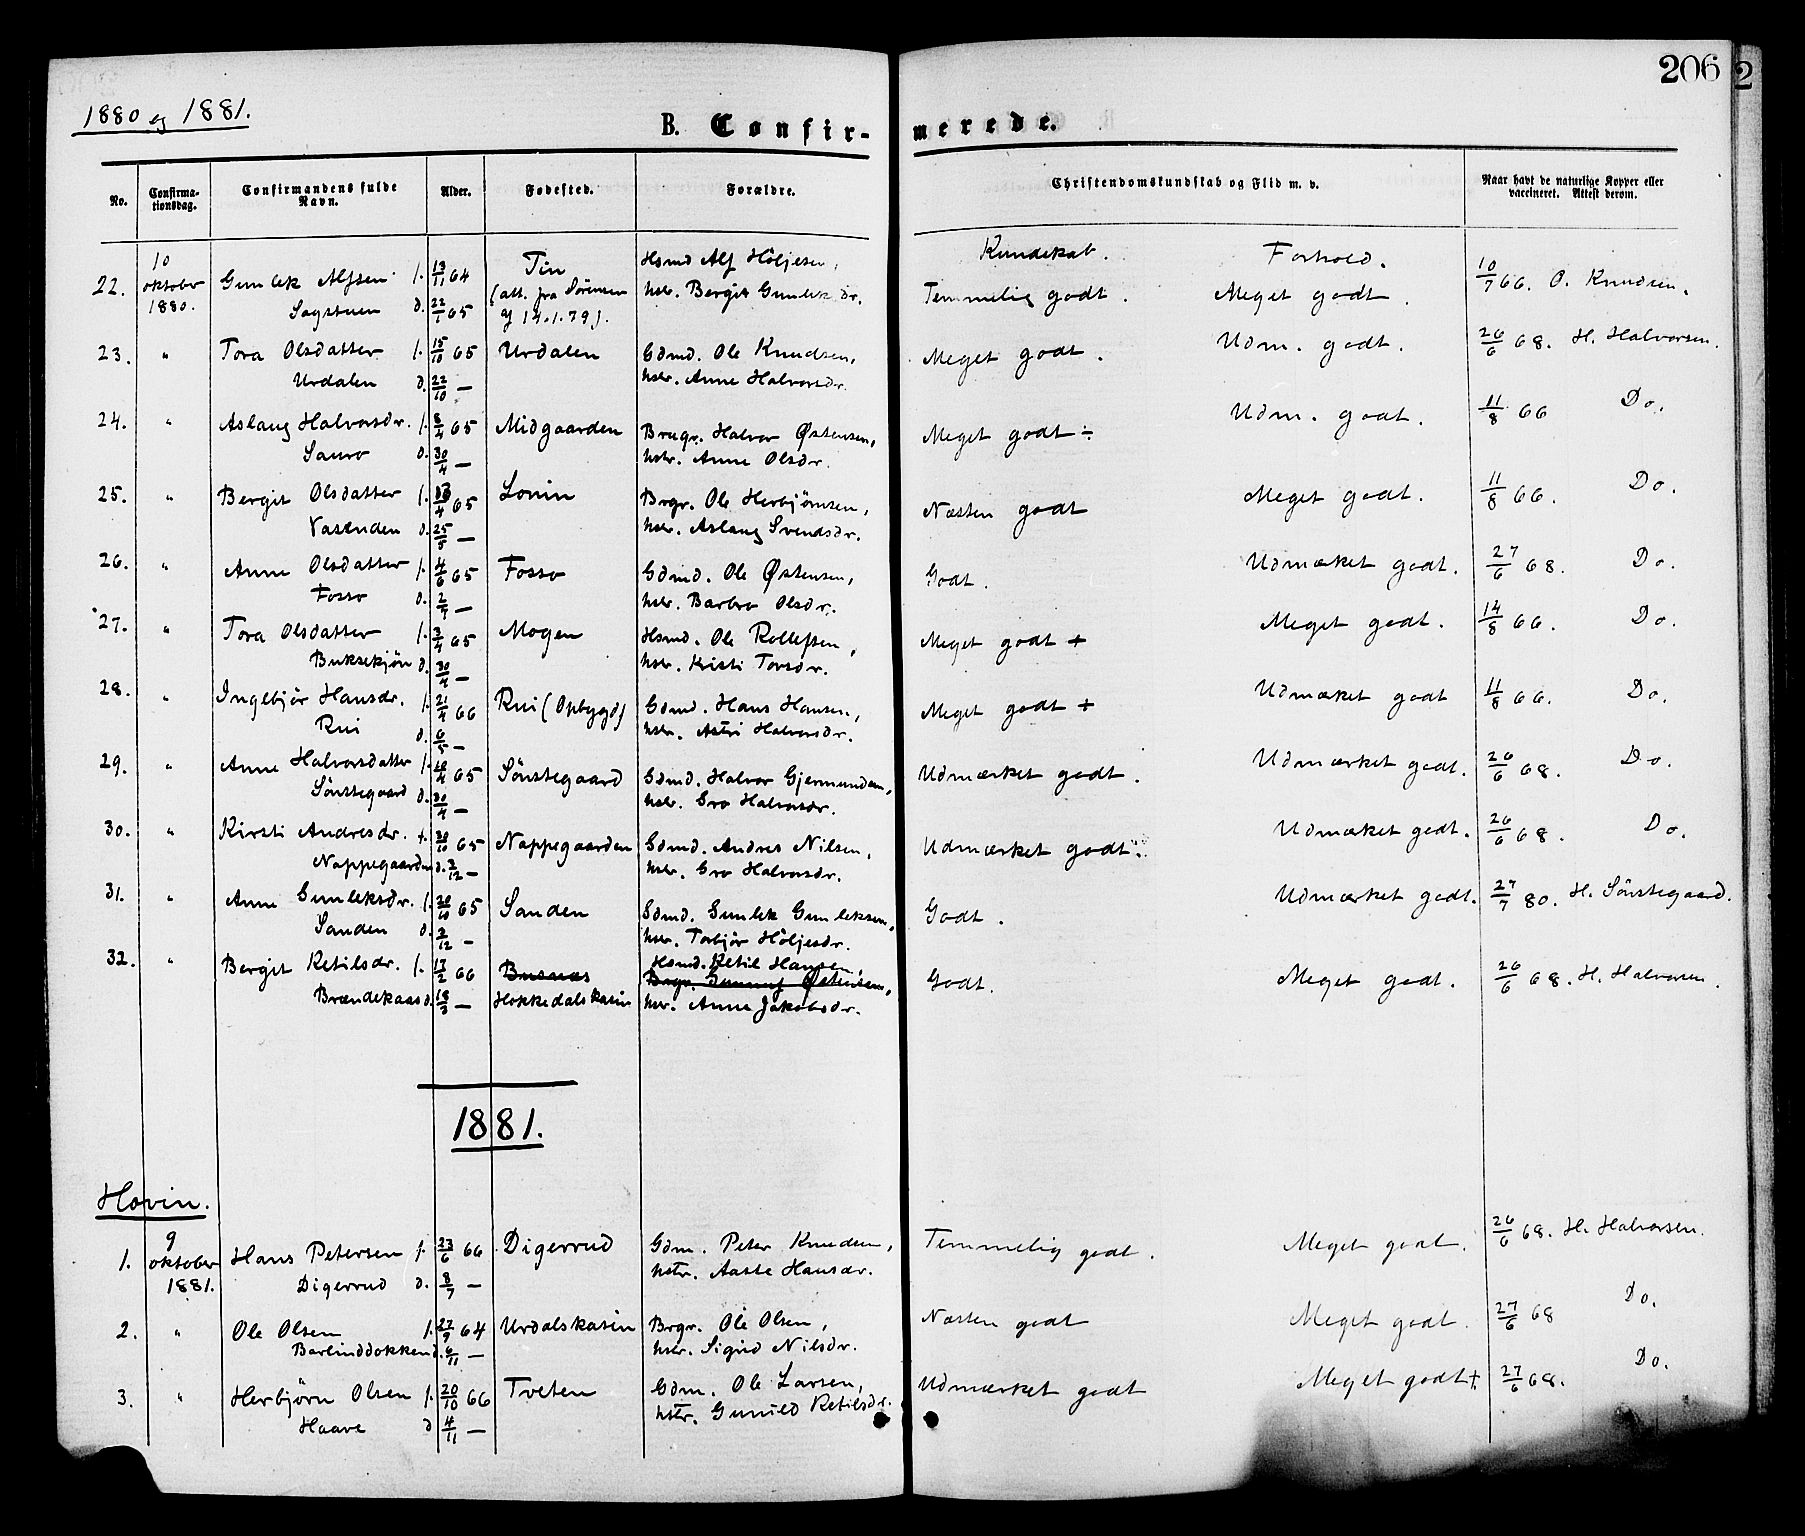 206
2
1880 og 1881.
B. Confirmerede.
No. Confirmationsdag. Confirmandens fulde Navn. Alder. Fødested. Forældre. Christendomskundskab og Flid m. v. Naar havt de naturlige Kopper eller vaccineret. Attest derom.
Kundskab. Forhold.
22. 10 oktober 1880. Gunlek Alfsen f. 13/11 64 Tin Hsmd Alf Höljesen, Temmelig godt. Meget godt. 10/7 66. O. Knudsen.
Sagstuen d. 22/1 65 (att. fra Sørensen hstr. Bergit Gunleksdr.
af 14.1.79).
23. " Tora Olsdatter f. 15/10 65 Urdalen Gdmd. Ole Knudsen, Meget godt. Udm. godt. 26/6 68. H. Halvorsen.
Urdalen d. 22/10 — hstr. Anne Halvorsdr.
24. " Aslaug Halvorsdr. f. 8/4 65 Midgaarden Brugr. Halvor Østensen, Meget godt ÷ Udm. godt. 11/8 66 Do.
Sauro d. 30/4 — hstr. Anne Olsdr.
25. " Bergit Olsdatter f. 4 65 Lonin Brgr. Ole Herbjørnsen, Næsten godt Meget godt. 11/8 66. Do.
Vasenden d. 25/5 — hstr. Aslaug Svendsdr.
26. " Anne Olsdatter f. 4/6 65 Fosso Gdmd. Ole Østensen, Godt. Udmærket godt. 27/6 68. Do.
Fosso d. 2/7 — hstr. Barbro Olsdr.
27. " Tora Olsdatter f. 3/4 65 Mogen Hsmd. Ole Rollefsen, Meget godt + Meget godt. 14/8 66. Do.
Buksekjøn d. 30/4 — hstr. Kristi Torsdr.
28. " Ingebjør Hansdr. f. 21/4 66 Rui (Opbygd) Gdmd. Hans Hansen, Meget godt + Udmærket godt 11/8 66. Do.
Rui d. 6/5 — hstr. Astri Halvorsdr.
29. " Anne Halvorsdatter f. 10/4 65 Sönstegaard Gdmd. Halvor Gjermundsen, Udmærket godt. Udmærket godt. 26/6 68. Do.
Sönstegaard d. 30/4 — hstr. Gro Halvorsdr.
30. " Kirsti Andresdr. f. 20/10 65 Nappegaarden Gdmd. Andres Nilsen, Udmærket godt Udmærket godt. 26/6 68. Do.
Nappegaarden d. 3/12 — hstr. Gro Halvorsdr.
31. " Anne Gunleksdr. f. 20/10 65 Sanden Gdmd. Gunlek Gunleksen, Godt. Udmærket godt. 27/7 80. H. Sönstegaard.
Sanden d. 3/12 — hstr. Torbjør Höljesdr.
32. " Bergit Ketilsdr. f. 17/2 66 Busnæs Hsmd. Ketil Hansen, Godt. Meget godt. 26/6 68. H. Halvorsen.
Brgr. Østensen,
Brændekaas d. 18/3 — Hokkedalskasin hstr. Anne Jakobsdr.
1881.
Hovin.
1. 9 oktober 1881. Hans Petersen f. 23/6 66 Digerrud Gdm. Peter Knudsen, Temmelig godt. Meget godt. 26/6 68. H. Halvorsen.
Digerrud d. 8/7 — hstr. Aaste Hansdr.
2. " Ole Olsen f. 27/9 64 Urdalskasin Brgr. Ole Olsen, Næsten godt Meget godt. 27/6 68 Do.
Barlinddokken d. 6/11 — hstr. Sigrid Nilsdr.
3. " Herbjørn Olsen f. 20/10 66 Tveten Gdm. Ole Larsen, Udmærket godt Meget godt +. 27/6 68. Do.
Haave d 4/11 — hstr. Gunild Ketilsdr.